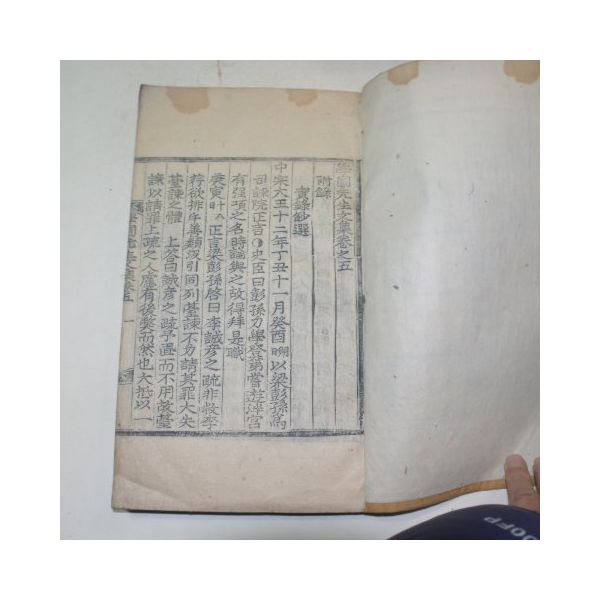 學圃先生文集卷之五
附錄
實錄鈔選
中宗大王十二年丁丑十一月癸酉朔以梁彭孫爲
司諫院正言○史臣曰彭孫力學登第嘗遊泮宮
有強項之名時論與之故得拜是職
庚寅十八日正言梁彭孫啓曰李誠彦之疏非救李
耔欲排斥善類汲引同列臺諫不力請其罪大失
臺諫之體 上答曰誠彦之疏予置而不用故臺
諫以請罪上疏之人慮有後弊而然也大抵以一
OOFP